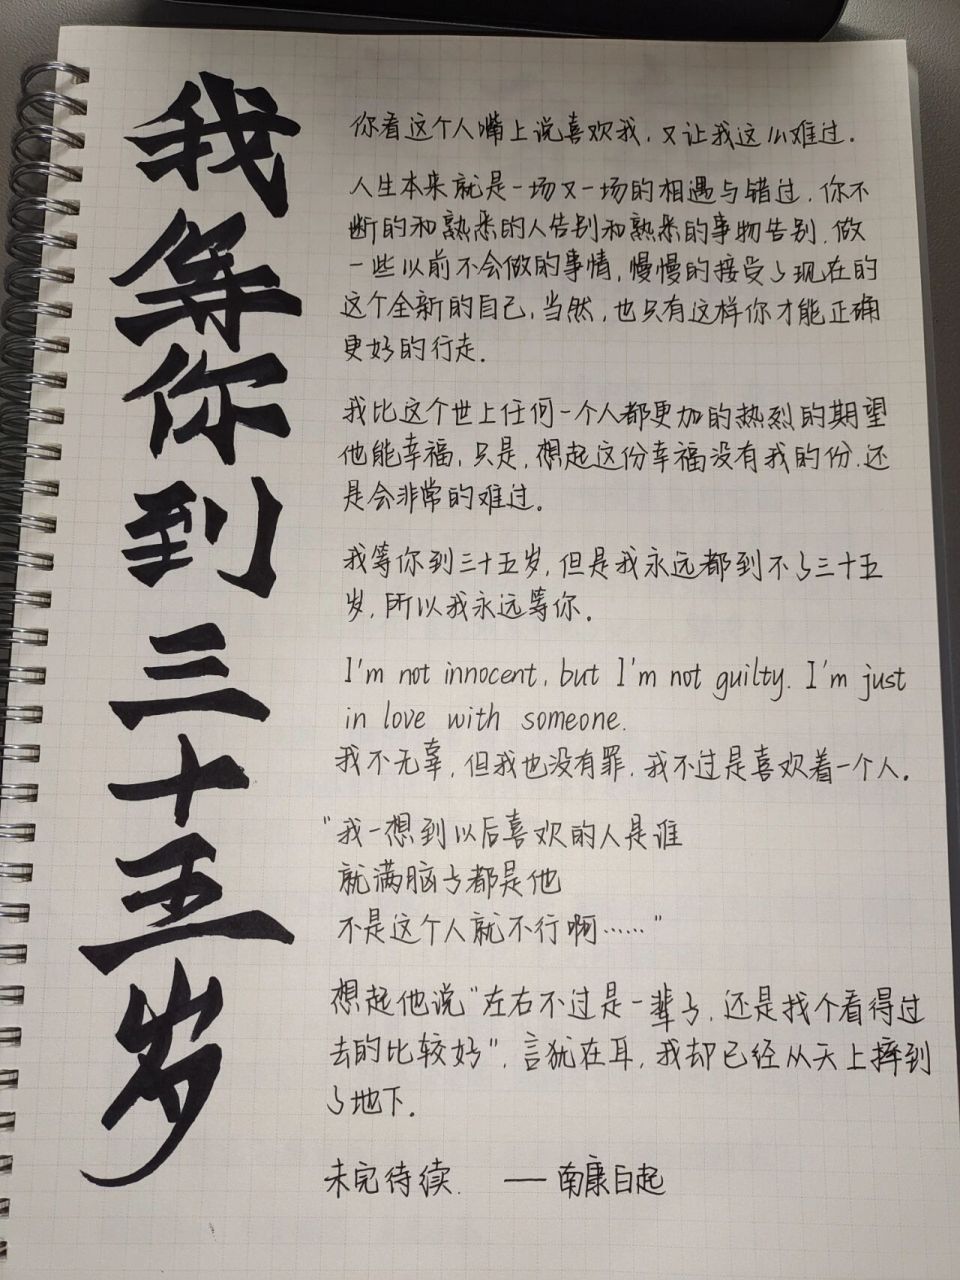 我等你到三十五岁
你看这个人嘴上说喜欢我，又让我这么难过．
人生本来就是一场又一场的相遇与错过．你不
断的和熟悉的人告别和熟悉的事物告别．做
一些以前不会做的事情，慢慢的接受了现在的
这个全新的自己，当然，也只有这样你才能正确
更好的行走．
我比这个世上任何一个人都更加的热烈的期望
他能幸福，只是，想起这份幸福没有我的份，还
是会非常的难过。
我等你到三十五岁，但是我永远都到不了三十五
岁，所以我永远等你．
I'm not innocent, but I'm not guilty. I'm just
in love with someone.
我不无辜，但我也没有罪，我不过是喜欢着一个人．
"我一想到以后喜欢的人是谁
就满脑子都是他
不是这个人就不行啊……"
想起他说"左右不过是一辈子，还是找个看得过
去的比较好"，言犹在耳，我却已经从天上摔到
了地下．
未完待续． —— 南康白起